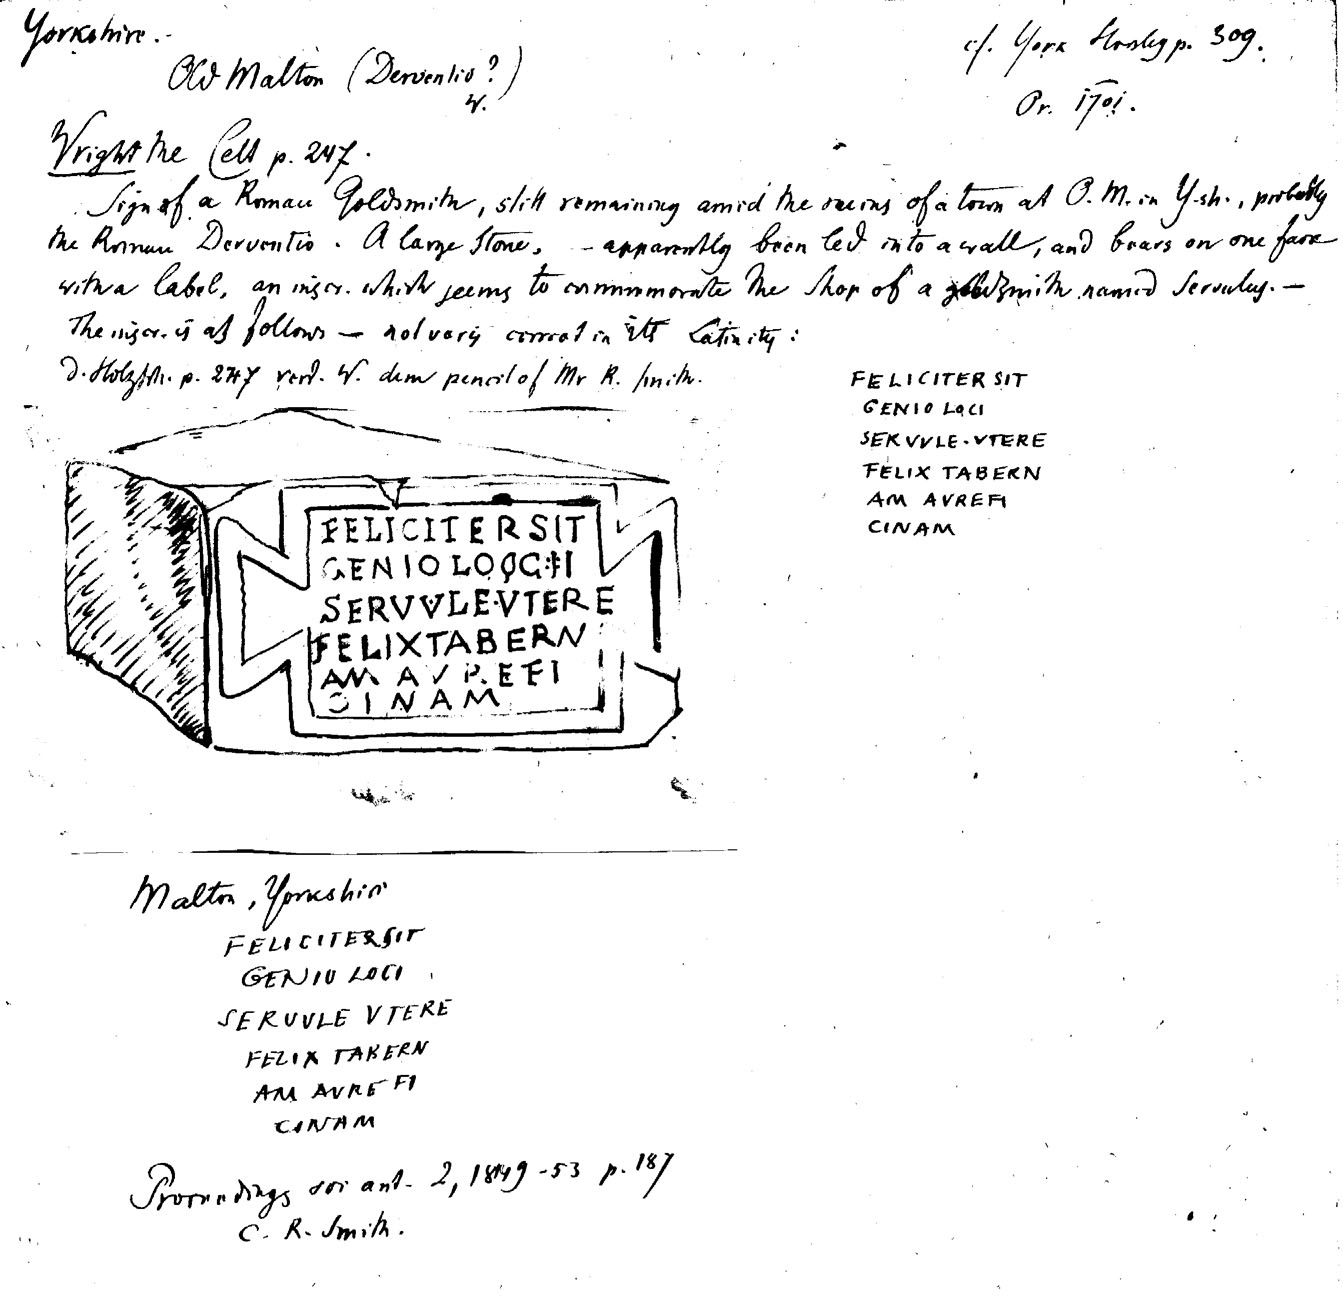 Yorkshire.
cf. York Horsley p. 309.
Old Malton (Derventio?)
W.
Or. 1701.
Wright the Celt p. 247.
Sign of a Roman Goldsmith, still remaining amid the ruins of a town at O. M. in Y.sh., probably
the Roman Derventio. A large stone, - apparently been led into a wall, and bears on one face
with a label, an inscr. which seems to commemorate the shop of a goldsmith named Servulus. —
The inscr. is as follows — not very correct in its Latinity:
d. Holzsch. p. 247 verd. W. dem pencil of Mr R. Smith.
FELICITER SIT
GENIO LOCI
SERVVLE·VTERE
FELIX TABERN
AM AVREFI
CINAM
FELICITERSIT
GENIO LO
SERVVLE·VTERE
FELIXTABERN
AM AVREFI
CINAM
Malton, Yorkshire
FELICITERSIT
GENIO LOCI
SERVVLE VTERE
FELIX TABERN
AM AVREFI
CINAM
Proceedings soc ant. 2, 1849-53 p. 187
C. R. Smith.